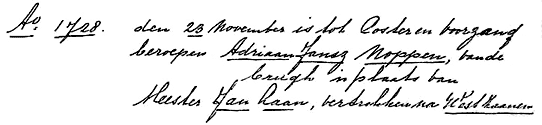 Ao. 1728. den 23 November is tot Coster en voorgang
beroepen Adriaan Jansz Noppen, vande
brugh in plaats van
Meester Jan Caan, vertrokken na West Zaanen